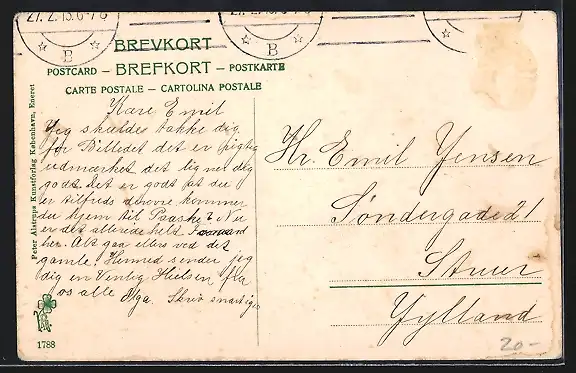 27. 2. 13. 6-7 8
B
B
BREVKORT
POSTCARD — BREFKORT — POSTKARTE
CARTE POSTALE — CARTOLINA POSTALE
Peter Alstrups Kunstforlag København, Eneret
Kære Emil
Jeg skuldes takke dig
for Billedet det er rigtig
udmærket det lig ner dig
godt det er godt at du
er tilfreds derovre kommer
du hjem til Paaske? Nu
er det allerede helt
her. Alt gaar ellers ved det
gamle. Hermed sender jeg
dig en Venlig Hielsen fra
os alle Olga. Skriv snart igen
1788
Hr. Emil Jensen
Søndergade 21
Struer
Jylland
20-